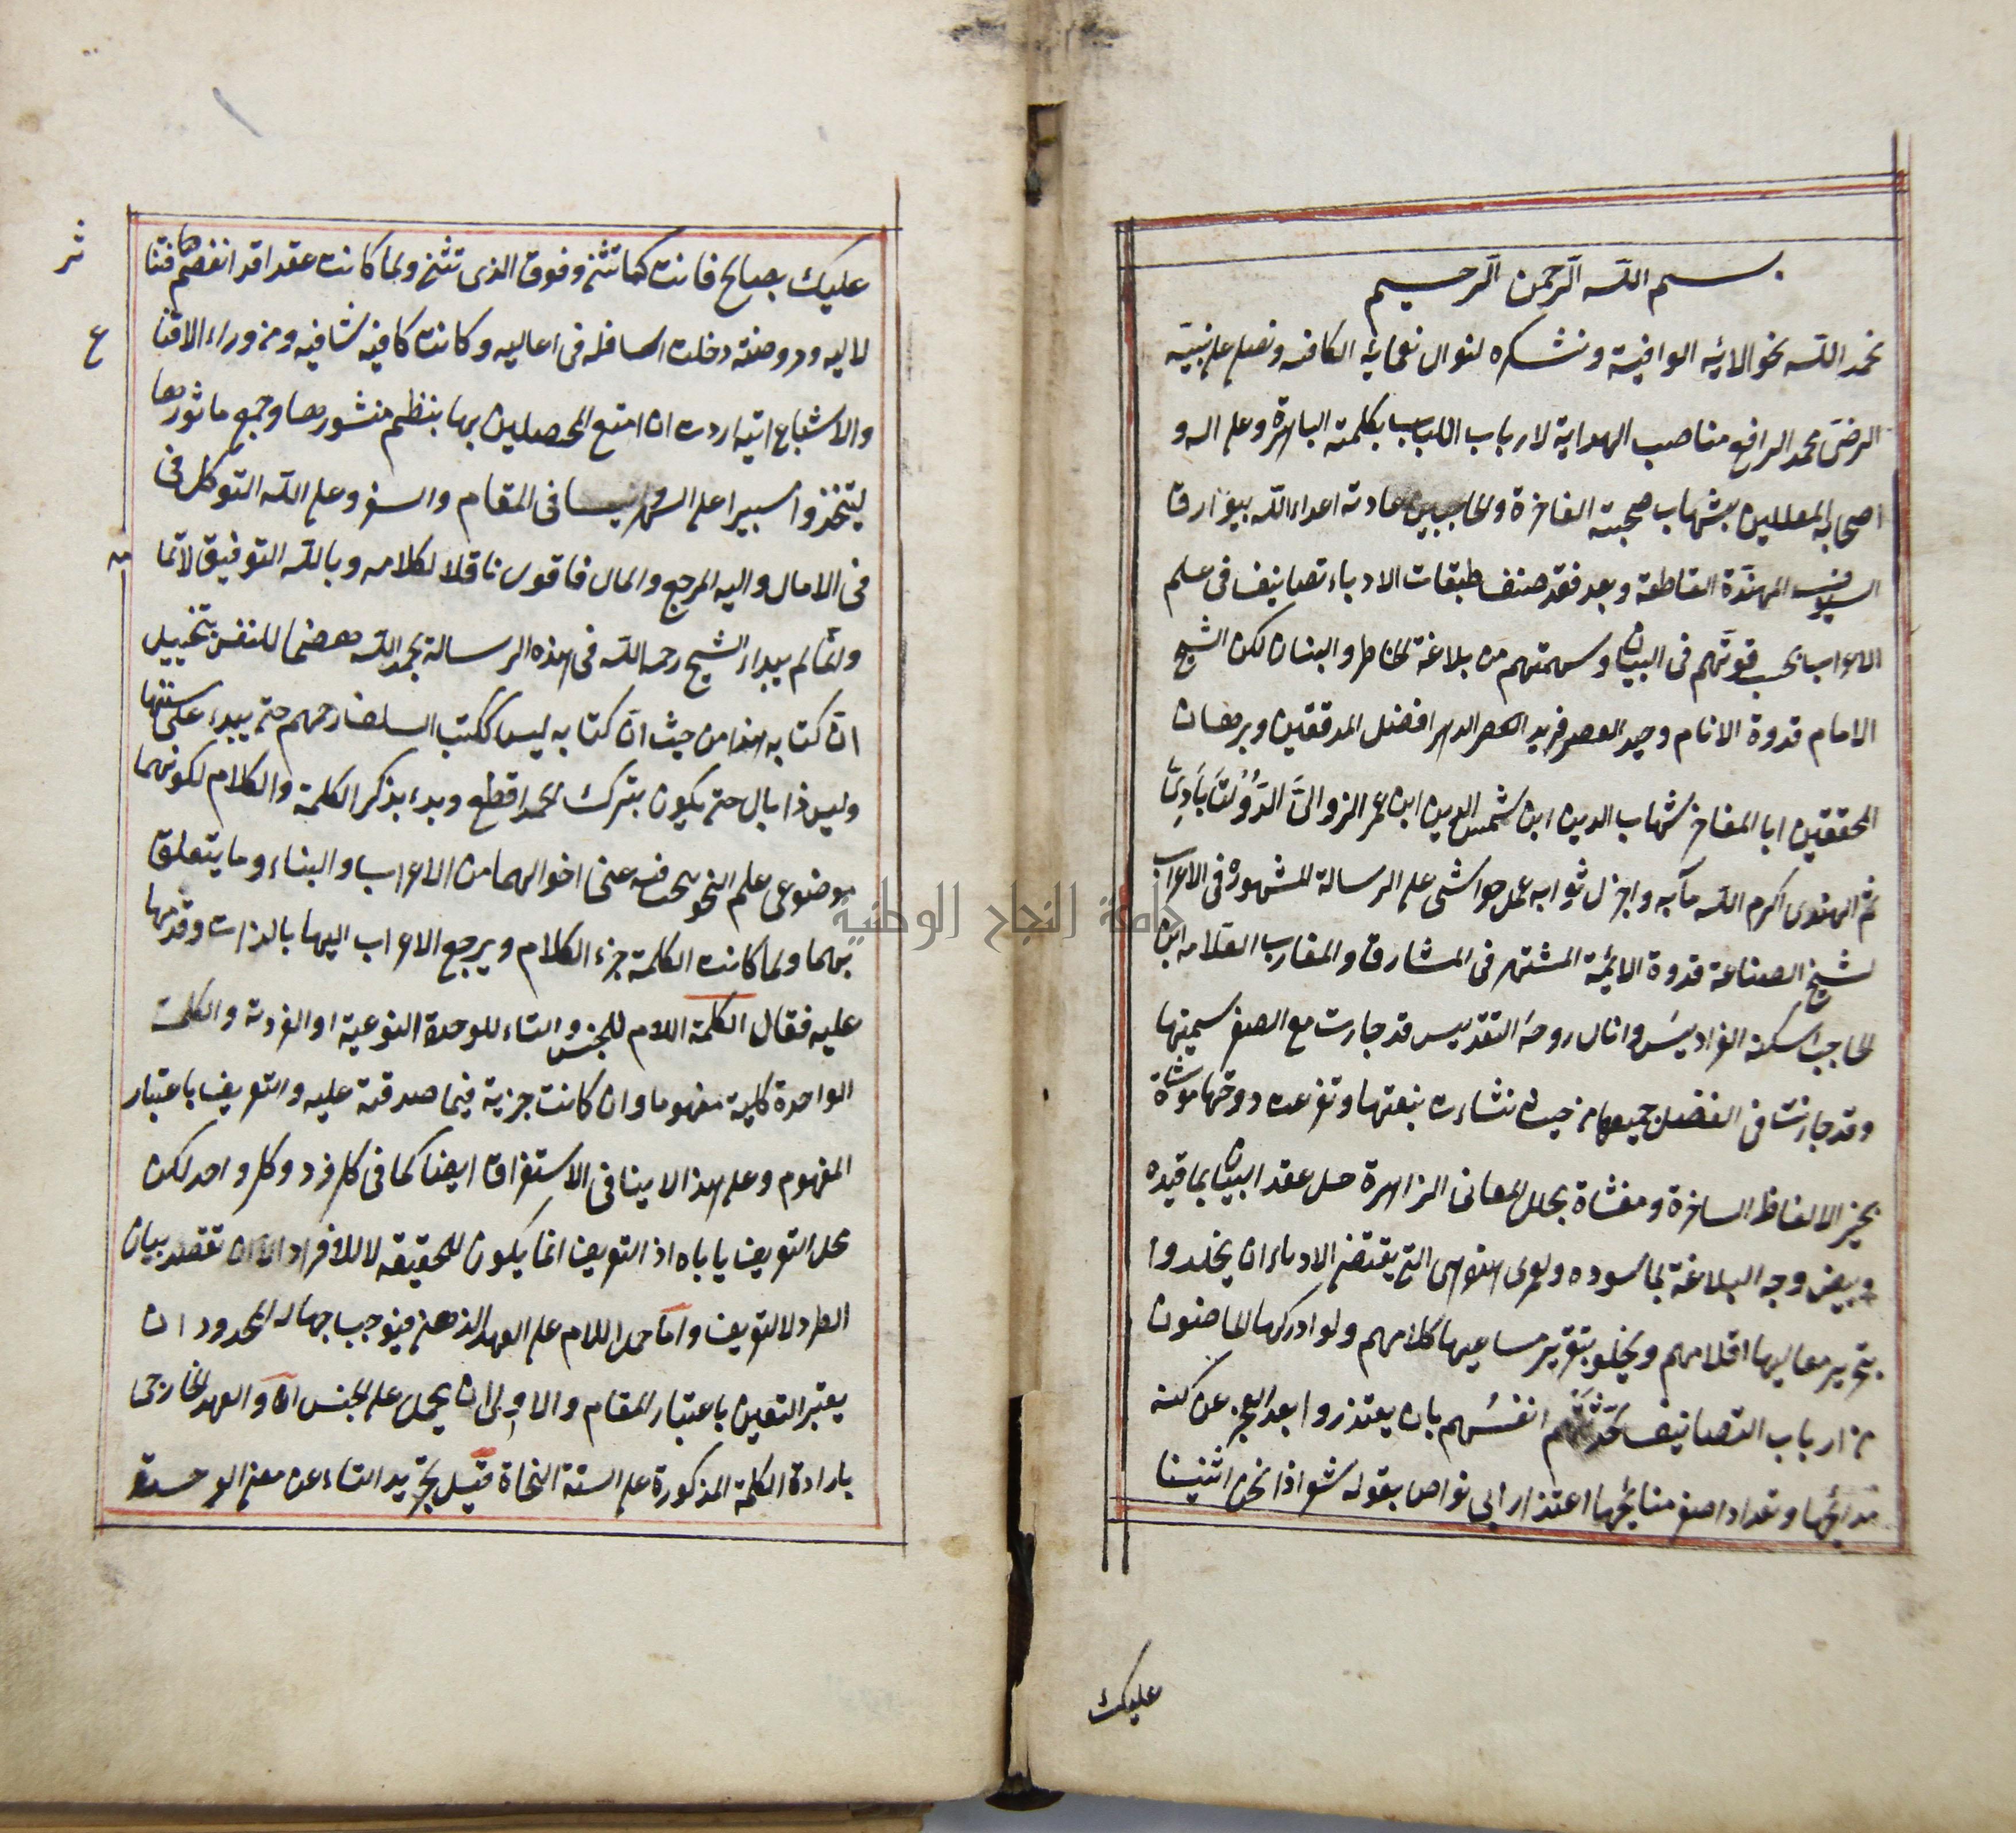 بسم الله الرحمن الرحيم
نحمد الله نحو الائه الوافية ونشكره لنوال نعمائه الكافيه ونصلى على نبيه
الرضى محمد الرافع مناصب الهداية لارباب اللباب بكلمته الباهرة وعلى اله و
اصحابه المعللين بشهاب صحبته الفاخرة والحاجبين عادته اعداء الله ببوارق
السيوف المهندة القاطعة وبعد فقد صنف طبقات الادباء تصانيف فى علم
الاعراب بحسب قوتهم فى البيان وسهمتهم من بلاغة الخاطر والبنان لكن الشيخ
الامام قدوة الانام وحيد العصر فريد الدهر افضل المدققين وبرهان
المحققين ابا المفاخر شهاب الدين ابن شمس الدين ابن عمر الزوالى الدولتابادى
ثم الهندى اكرم الله مآبه واجزل ثوابه عمل حواشى على الرسالة المشهورة فى الاعراب
لشيخ الصناعة قدوة الايمة المشتهر فى المشارق والمغارب العلامه ابن
الحاجب اسكنه الفراديس وانال روحه التقديس قد جارت مع الصغر سميتها
وقد جازت فى الفضل جميعها من حيث نشاءت بنعتها وتفرعت دوحتها موشاة
بحبر الالفاظ الساخرة ومغشاة بحلل المعانى الزاهرة حل عقد البيان بما قيده
وبيض وجه البلاغة بما سوده ولعمرى انها لهى التى يقتضى الادباء ان يخلدوا
بتحرير معاليها اقلامهم ويخلو بتقرير مساعيها كلامهم ولو ادركها الماضون
من ارباب التصانيف لحدثتهم انفسهم بان يعتذروا بعد العجز عن كنه
مدائحها وتعداد اصغر منائحها اعتذار ابى نواص بقوله شعر اذا نحن اثنينا
عليك
عليك بصالح فانت كما نثنى وفوق الذى نثنى ولما كانت عقدا قد انفصم فتنا
لاليه وروضة دخلت اسافله فى اعاليه وكانت كافيه شافيه ومن وراء الاقنا
والاشباع اتيه اردت ان امتع المحصلين بها بنظم منثورها وجمع ماثورها
ليتخذوا سبيرا على السهر فى المقام والسفر وعلى الله التوكل فى
فى الامال واليه المرجع والمال فاقول ناقلا لكلامه وبالله التوفيق لاتما
ولما لم يبداء الشيخ رحمه الله فى هذه الرسالة بحمد الله هضما للنفس بتخييل
ان كتابه هذا من حيث ان كتابه ليس ككتب السلف رحمهم حتى يبدء على سننها
وليس ذا بال حتى يكون بترك الحمد اقطع وبدء بذكر الكلمة والكلام لكونهما
موضوعى علم النحو يبحث فيه عن احوالهما من الاعراب والبناء وما يتعلق
بهما ولما كانت الكلمة جزء الكلام ويرجع الاعراب اليها بالذات وقدمها
عليه فقال الكلمة اللام للجنس والتاء للوحدة النوعية او الفردية والكلمة
الواحدة كلية مفهوما وان كانت جزية فيما صدقت عليه والتعريف باعتبار
المفهوم وعلى هذا لا ينافى الاستغراق ايضا كما فى كل فرد وكل واحد لكن
محل التعريف ياباه اذ التعريف انما يكون للحقيقه لا للافراد الا ان تقصد بيان
الطرد لا التعريف واما حمل اللام على العهد الذهنى فيوجب جهاله المحدود ان
يعتبر التعين باعتبار المقام والاولى ان يحمل على الجنس او العهد الخارجى
بارادة الكلمة المذكورة على السنة النحاة قيل بتجريد التاء عن معنى الوحدة